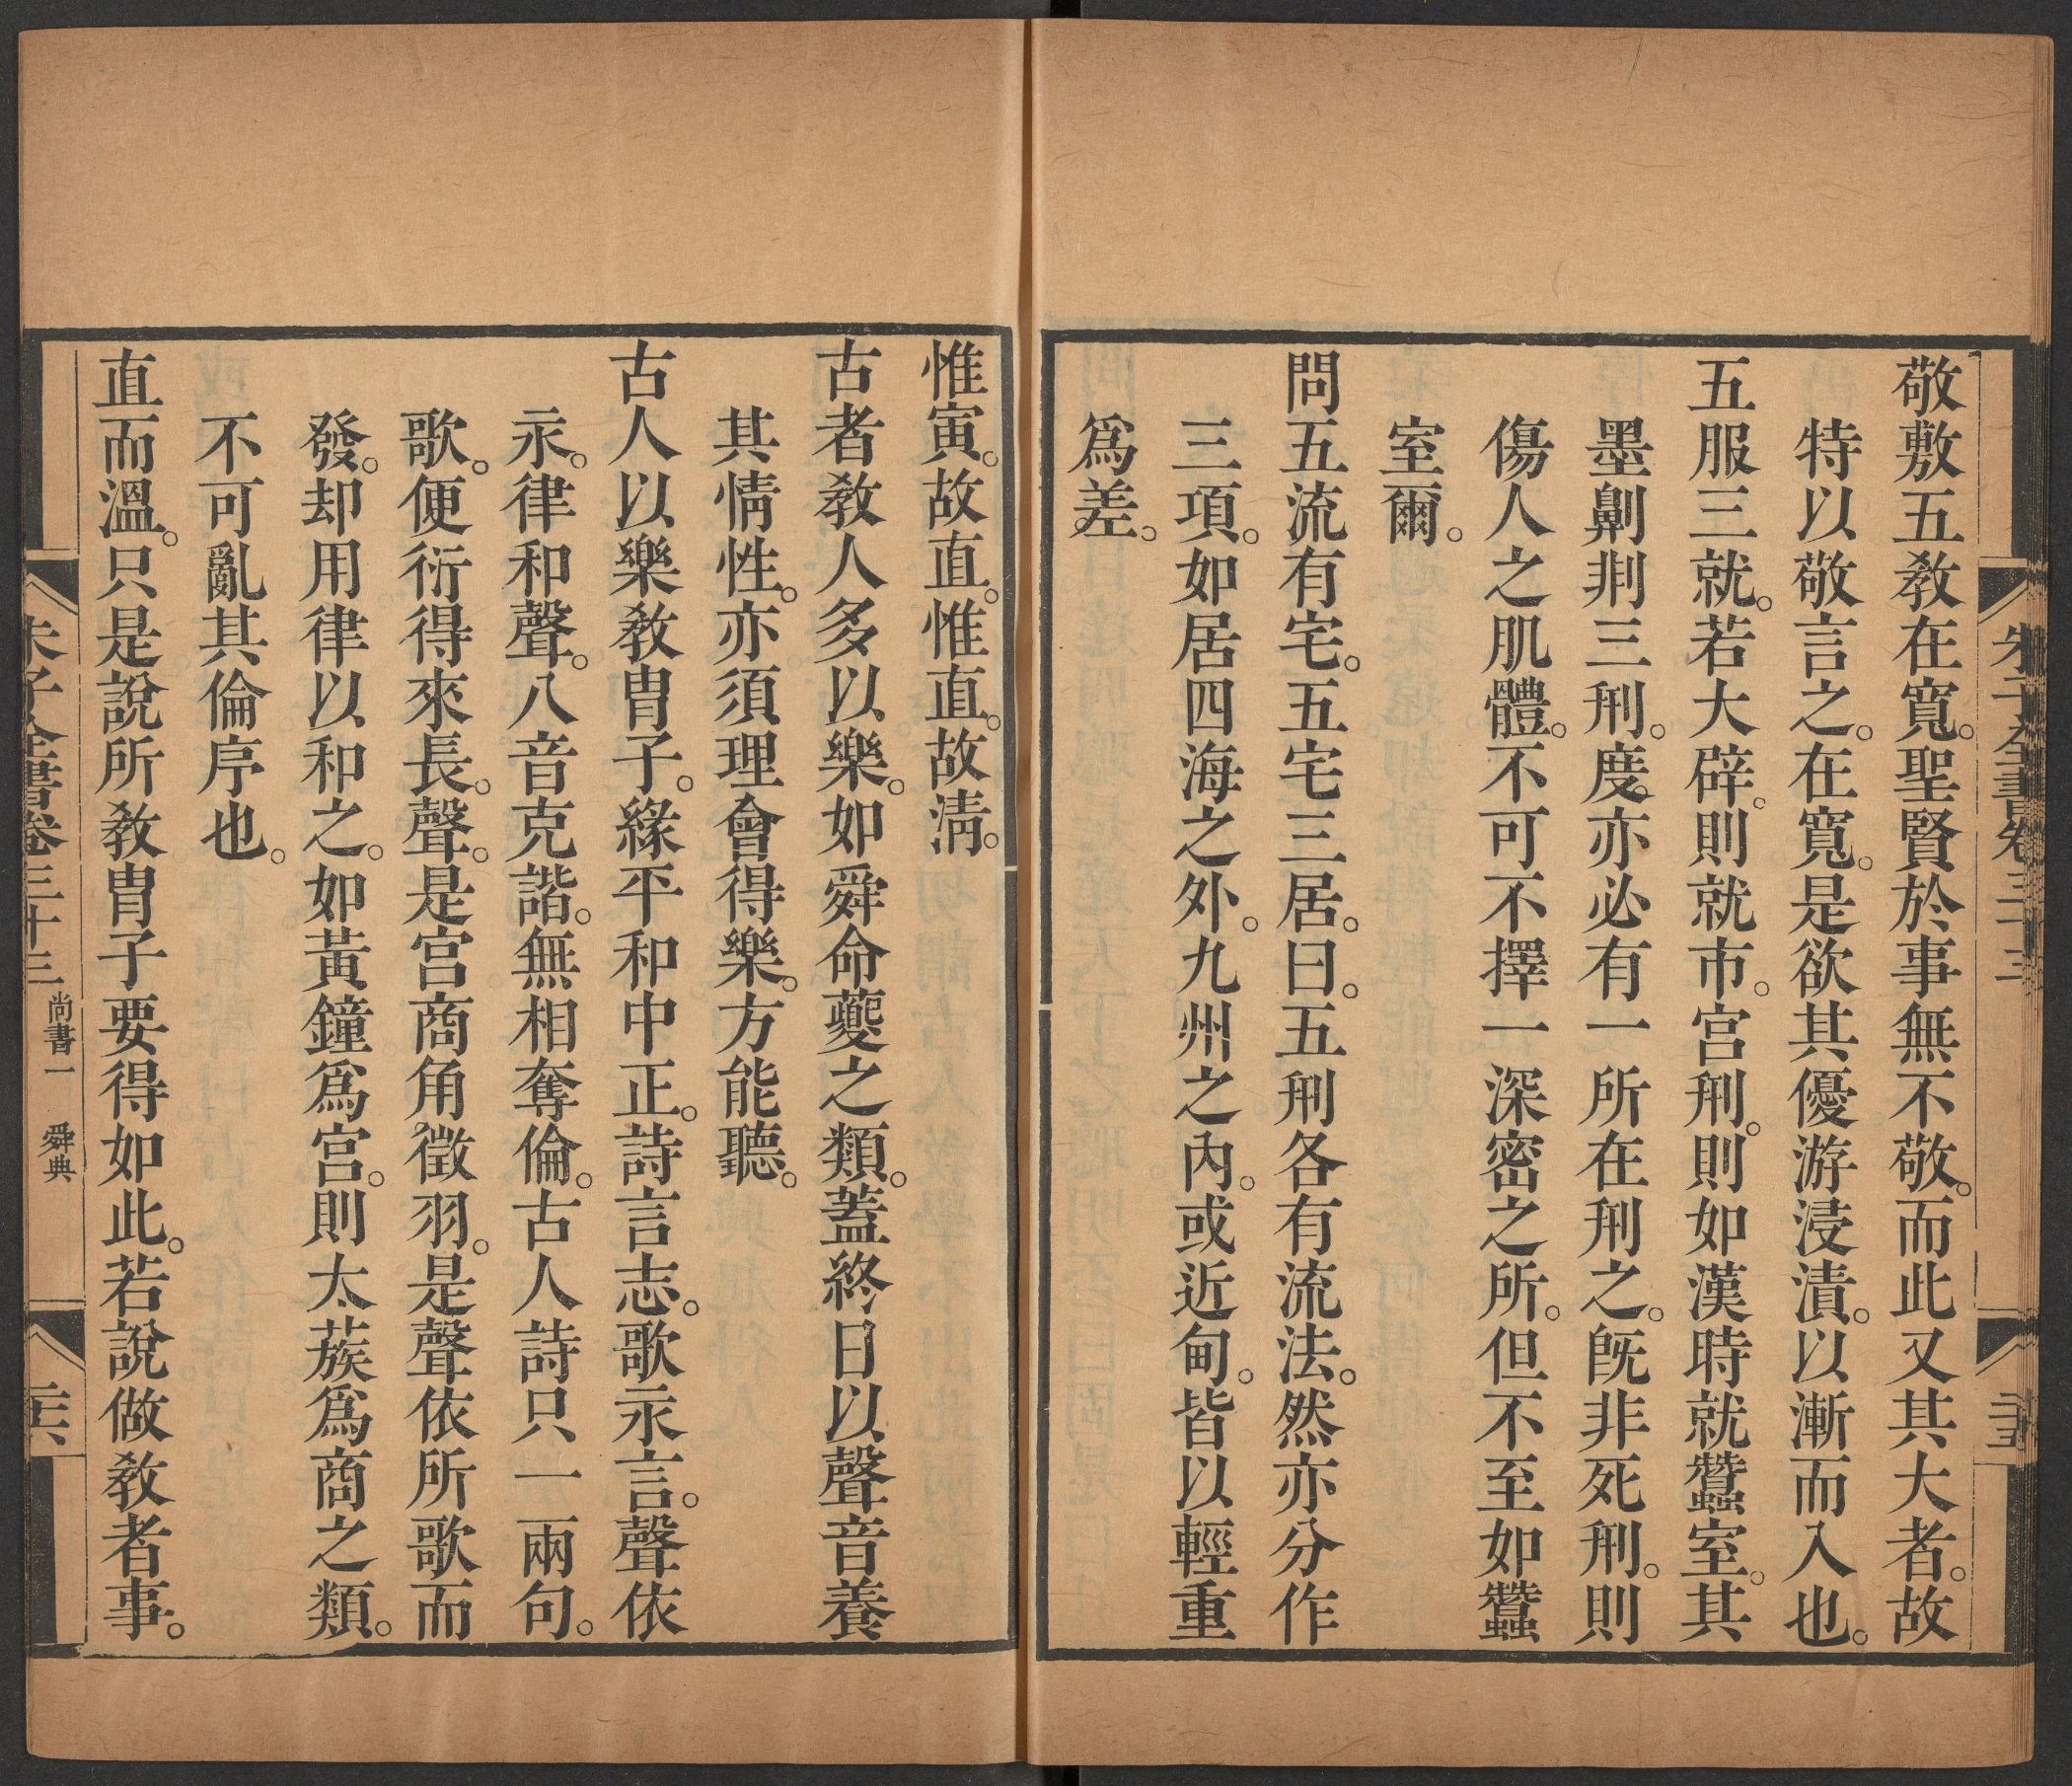 朱子全書卷三十三
三十五
敬敷五教在寬。聖賢於事無不敬。而此又其大者。故
特以敬言之。在寬。是欲其優游浸漬。以漸而入也。
五服三就。若大辟。則就市。宮刑。則如漢時就蠶室。其
墨劓剕三刑。度亦必有一所在刑之。旣非死刑。則
傷人之肌體。不可不擇一深密之所。但不至如蠶
室爾。
問五流有宅。五宅三居。曰。五刑各有流法。然亦分作
三項。如居四海之外。九州之內。或近甸。皆以輕重
爲差。
惟寅。故直。惟直。故淸。
古者敎人多以樂。如舜命夔之類。蓋終日以聲音養
其情性。亦須理會得樂。方能聽。
古人以樂敎胄子。緣平和中正。詩言志。歌永言。聲依
永。律和聲。八音克諧。無相奪倫。古人詩只一兩句。
歌。便衍得來長。聲。是宮商角徵羽。是聲依所歌而
發。却用律以和之。如黃鐘爲宮。則太蔟爲商之類。
不可亂其倫序也。
直而溫。只是說所敎胄子要得如此。若說做敎者事。
朱子全書卷三十三 尚書一 舜典
三十六